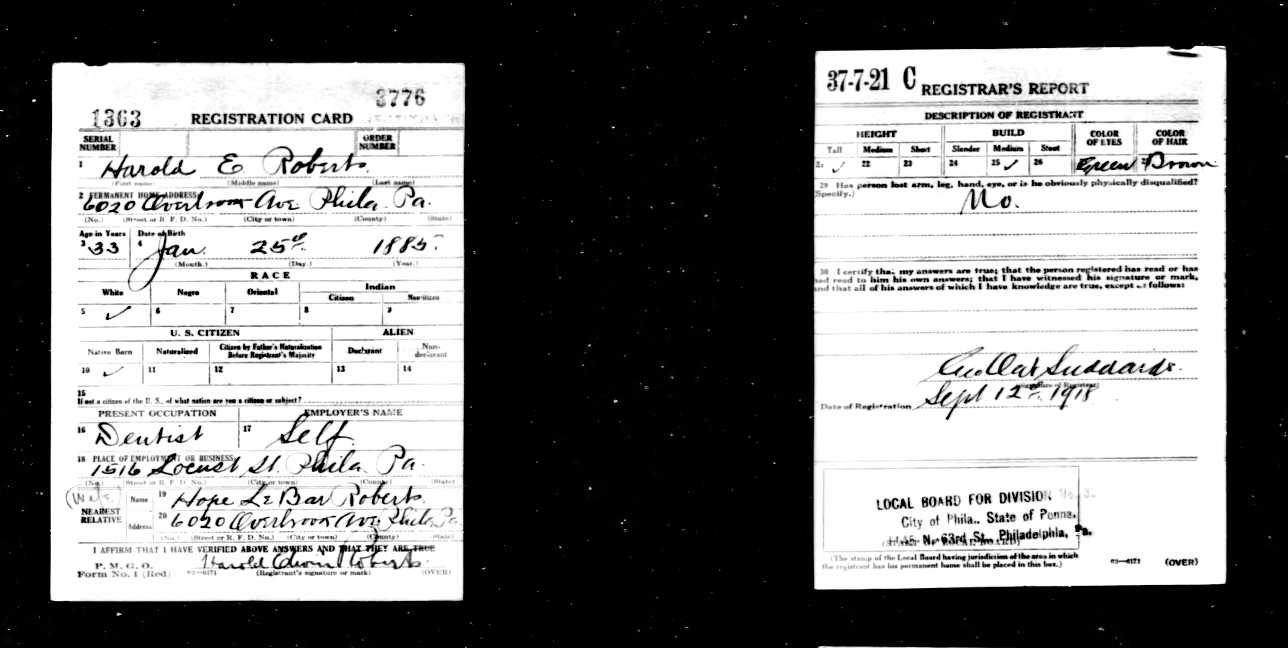 1363
3776
REGISTRATION CARD
SERIAL NUMBER
ORDER NUMBER
1 Harold E Roberts
(First name) (Middle name) (Last name)
2 PERMANENT HOME ADDRESS:
6020 Overbrook Ave Phila. Pa.
(No.) (Street or R. F. D. No.) (City or town) (County) (State)
Age in Years Date of Birth
3 33 4 Jan. 25th 1885
(Month.) (Day.) (Year.)
RACE
White Negro Oriental Indian
Citizen Noncitizen
5 ✓ 6 7 8 9
U. S. CITIZEN ALIEN
Native Born Naturalized Citizen by Father's Naturalization Before Registrant's Majority Declarant Non-declarant
10 ✓ 11 12 13 14
15
If not a citizen of the U. S., of what nation are you a citizen or subject?
PRESENT OCCUPATION EMPLOYER'S NAME
16 Dentist 17 Self
18 PLACE OF EMPLOYMENT OR BUSINESS:
1516 Locust St. Phila. Pa.
(No.) (Street or R. F. D. No.) (City or town) (County) (State)
NEAREST RELATIVE
Name 19 Hope LeBar Roberts
Address 20 6020 Overbrook Ave Phila Pa
(No.) (Street or R. F. D. No.) (City or town) (County) (State)
I AFFIRM THAT I HAVE VERIFIED ABOVE ANSWERS AND THAT THEY ARE TRUE
P. M. G. O.
Form No. 1 (Red) Harold Edwin Roberts
(Registrant's signature or mark) (OVER)
37-7-21 C REGISTRAR'S REPORT
DESCRIPTION OF REGISTRANT
HEIGHT BUILD COLOR OF EYES COLOR OF HAIR
Tall Medium Short Slender Medium Stout
21 ✓ 22 23 24 25 ✓ 26 Green Brown
29 Has person lost arm, leg, hand, eye, or is he obviously physically disqualified?
(Specify.) No.
30 I certify that my answers are true; that the person registered has read or has
had read to him his own answers; that I have witnessed his signature or mark,
and that all of his answers of which I have knowledge are true, except as follows:
(Signature of Registrar)
Date of Registration Sept 12th 1918
LOCAL BOARD FOR DIVISION
City of Phila., State of Penna.
N. 63rd St., Philadelphia, Pa.
(The stamp of the Local Board having jurisdiction of the area in which
the registrant has his permanent home shall be placed in this box.)
03—6171 (OVER)